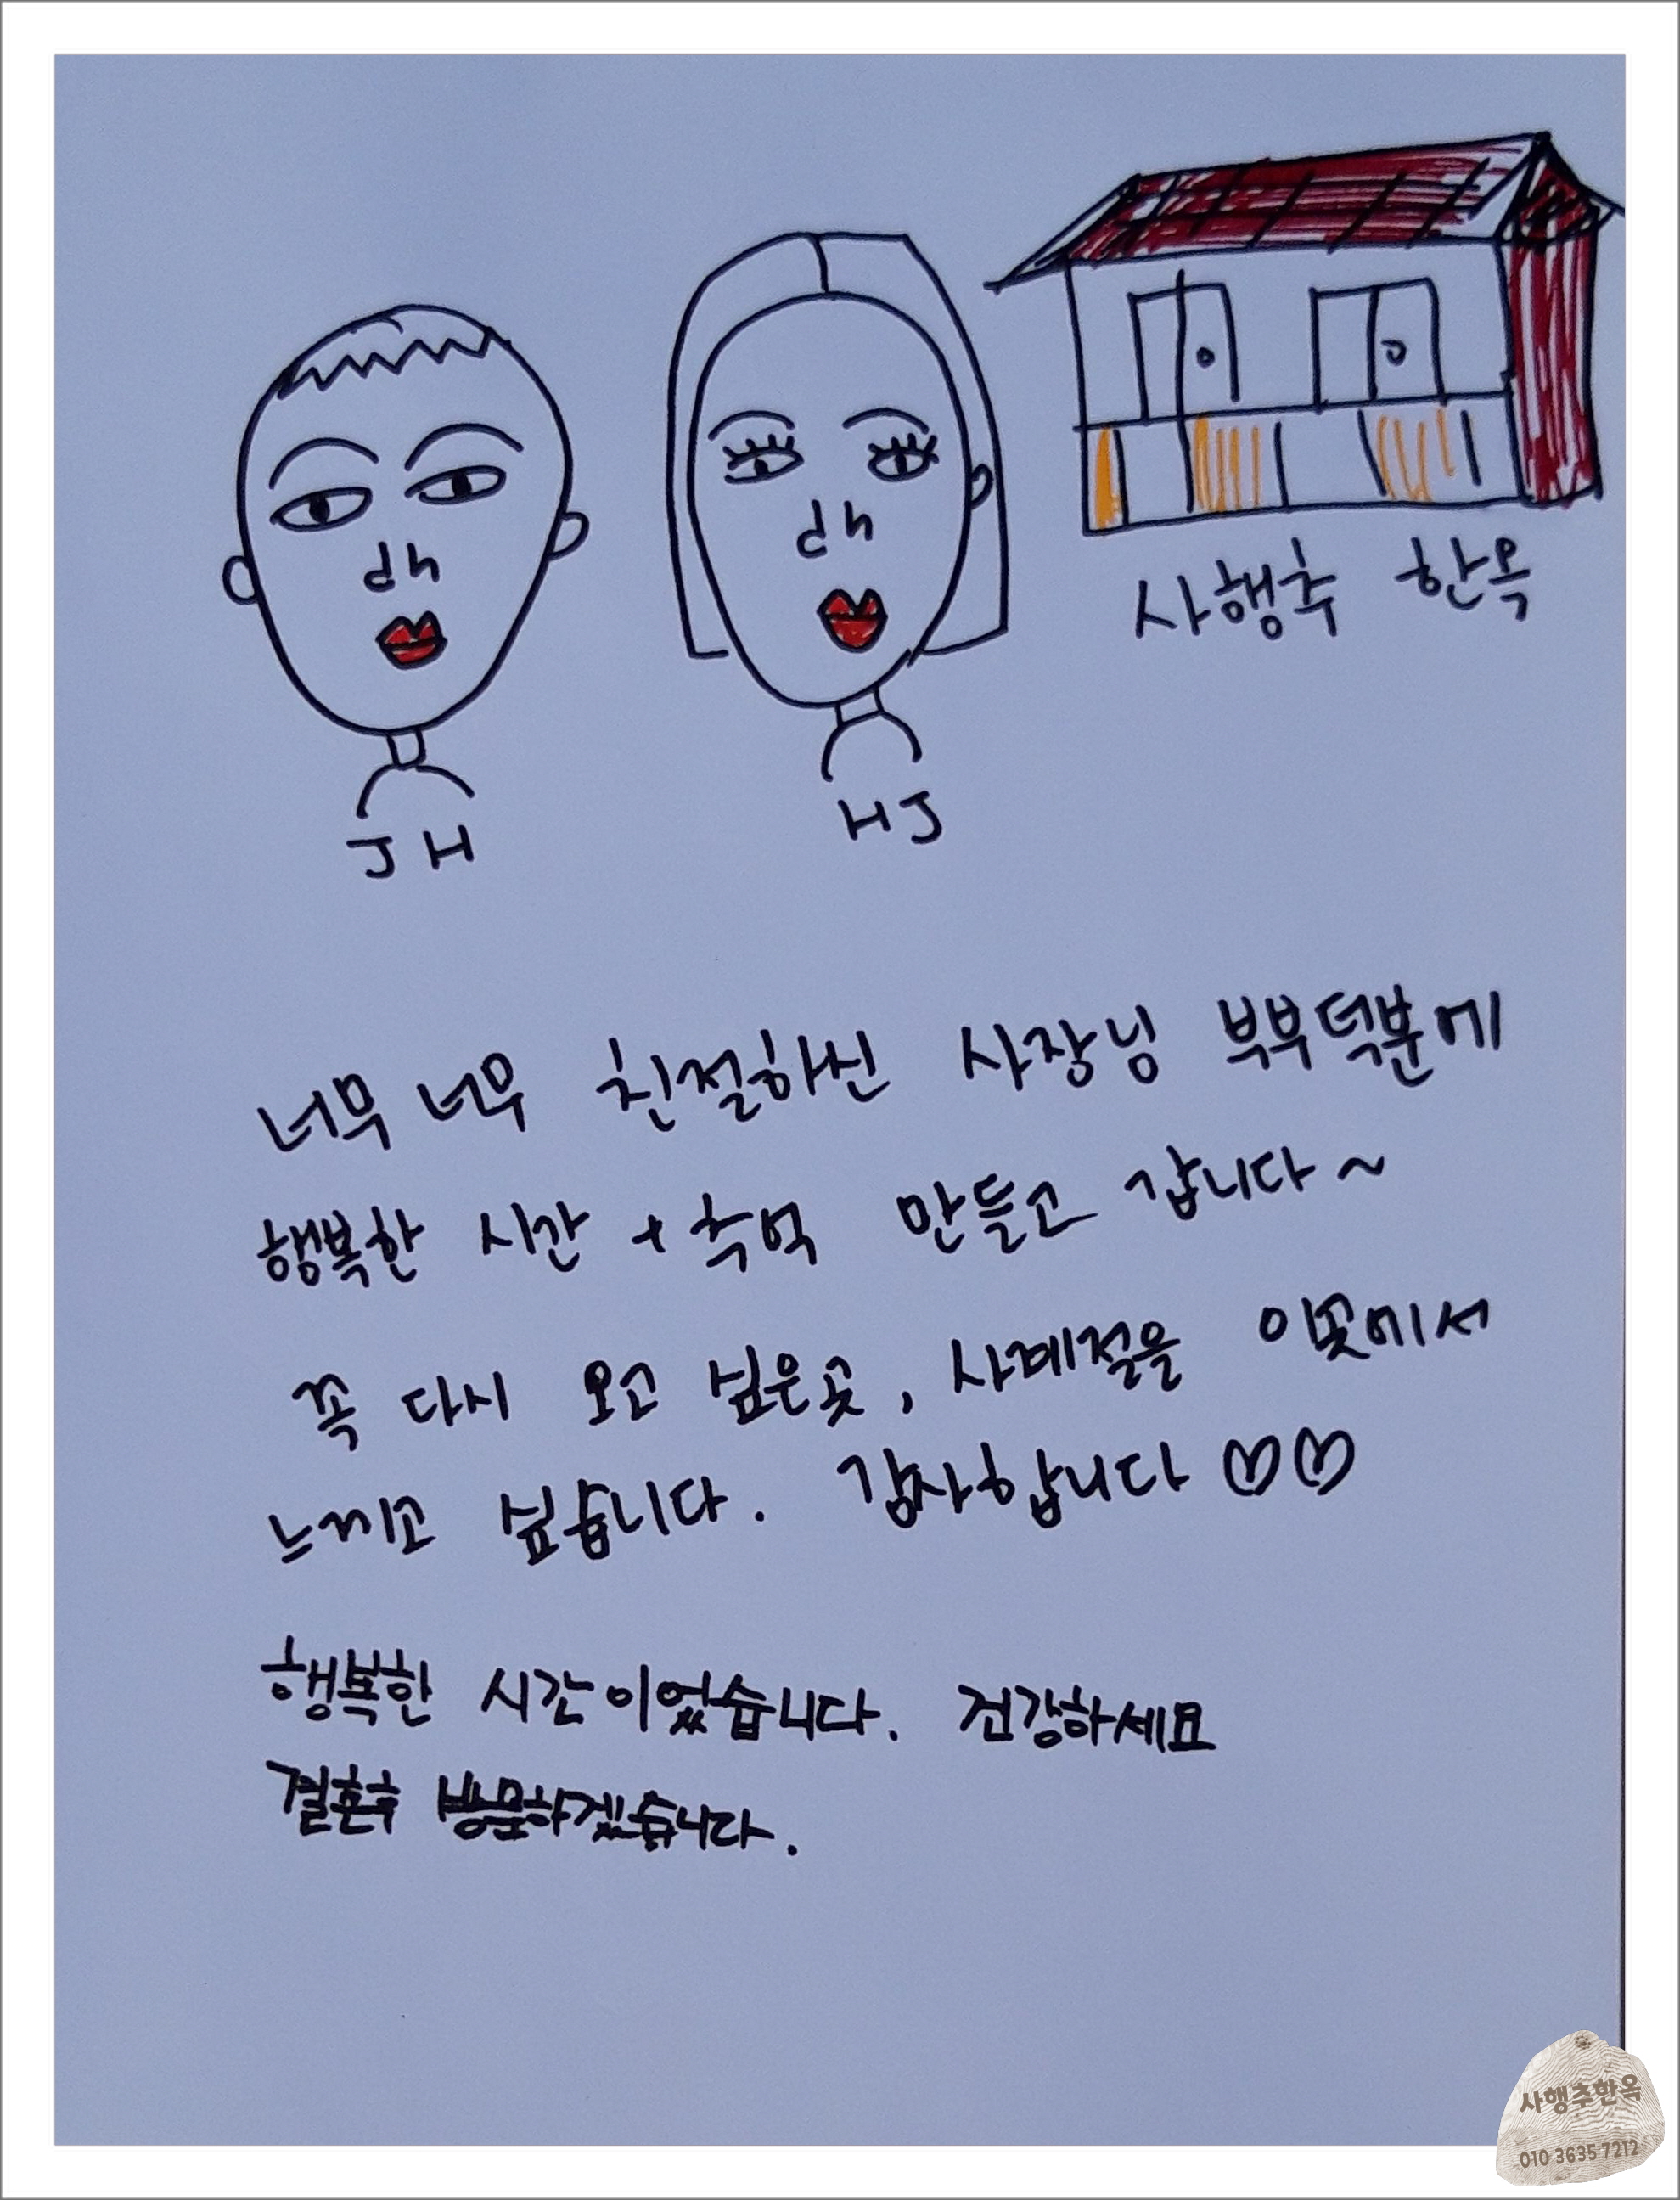 사행추 한옥
JH
HJ
너무 너무 친절하신 사장님 부부덕분에
행복한 시간 + 추억 만들고 갑니다~
꼭 다시 오고 싶은곳, 사계절을 이곳에서
느끼고 싶습니다. 감사합니다 ♡♡
행복한 시간이었습니다. 건강하세요
결혼후 방문하겠습니다.
사행추한옥
010 3635 7212